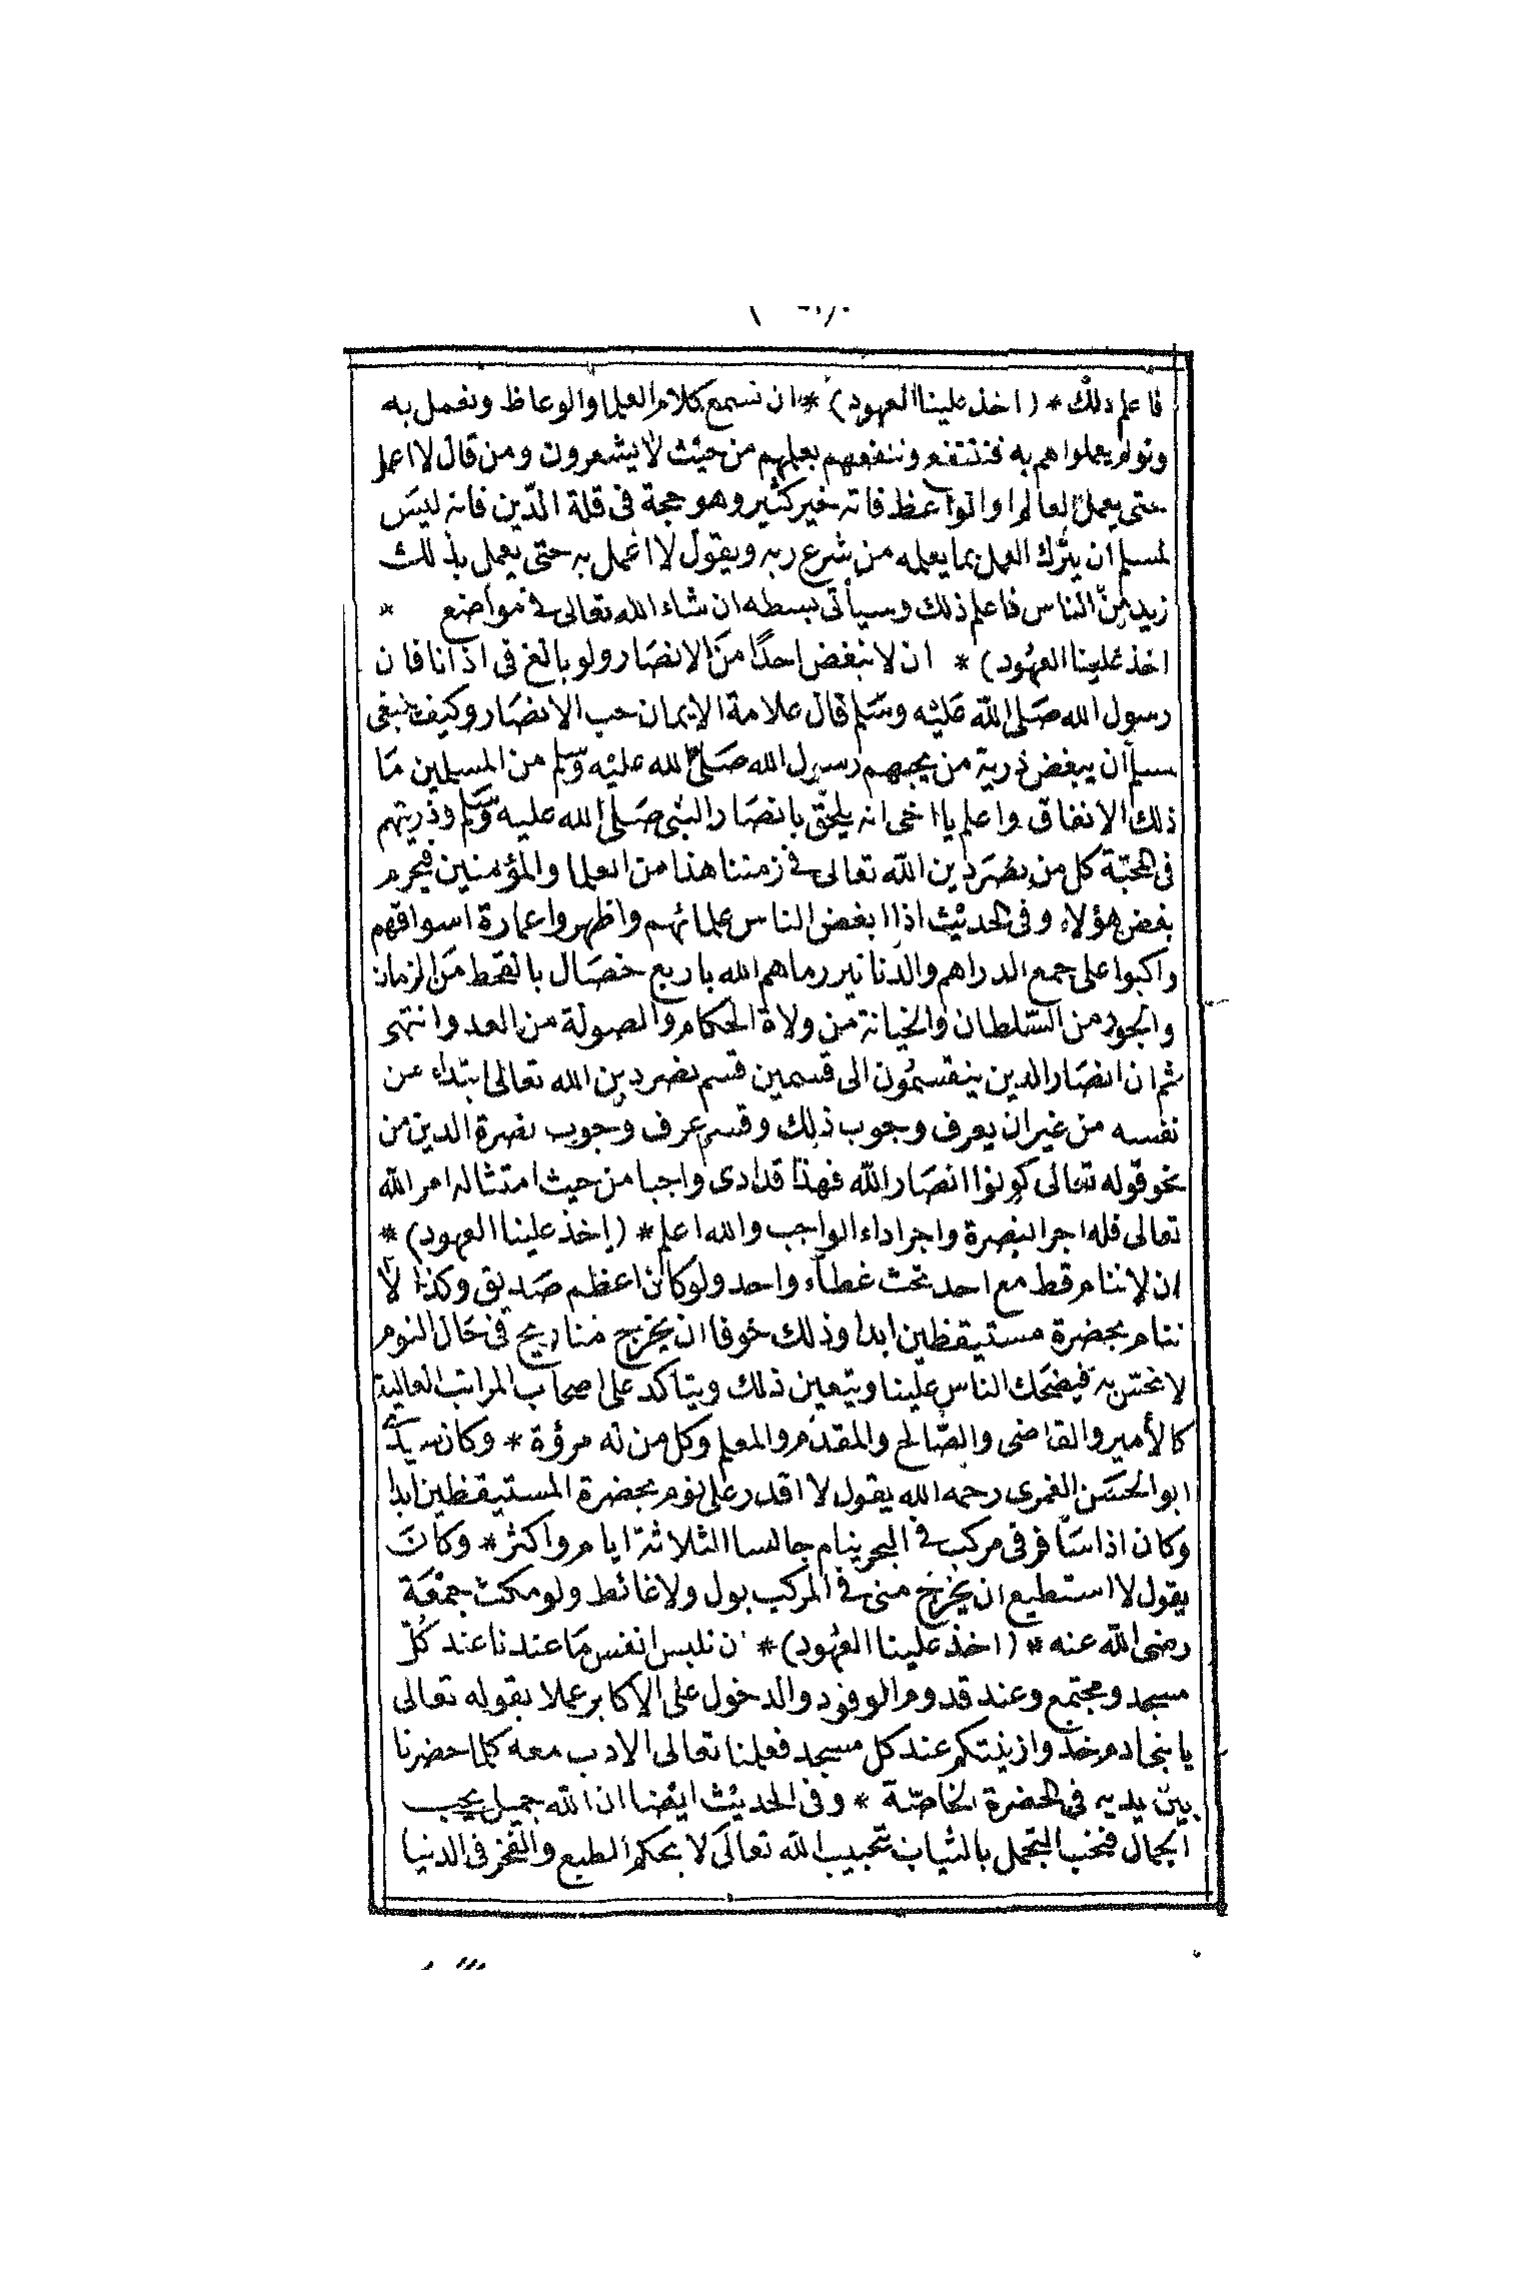 فاعلم ذلك * (اخذ علينا العهود) * ان نسمع كلام العلما والوعاظ ونعمل به
ولو لم يعملوا هم به فننتفع وننفعهم بعلمهم من حيث لا يشعرون ومن قال لا اعمل
حتى يعمل العالم او الواعظ فاته خير كثير وهو حجة فى قلة الدّين فانه ليس
لمسلم ان يترك العمل بما يعلمه من شرع ربه ويقول لا اعمل به حتى يعمل بذلك
زيد من الناس فاعلم ذلك وسيأتى بسطه ان شاء الله تعالى فى مواضع *
اخذ علينا العهود) * ان لا نبغض احدًا من الانصار ولو بالغ فى اذانا فان
رسول الله صلى الله عليه وسلم قال علامة الايمان حب الانصار وكيف ينبغى
لمسلم أن يبغض ذرية من يحبهم رسول الله صلى الله عليه وسلم من المسلمين ما
ذلك الا نفاق واعلم يا اخى انه يلحق بانصار النبى صلى الله عليه وسلم وذريتهم
فى المحبّة كل من نصر دين الله تعالى فى زمننا هذا من العلما والمؤمنين فيحرم
بغض هؤلاء وفى الحديث اذا ابغض الناس علمائهم واظهروا عمارة اسواقهم
واكبوا على جمع الدراهم والدنانير رماهم الله باربع خصال بالقحط من الزمان
والجور من السّلطان والخيانة من ولاة الحكام والصولة من العدو انتهى
ثم ان انصار الدين ينقسمُون الى قسمين قسم نصر دين الله تعالى ابتداء عن
نفسه من غير ان يعرف وجوب ذلك وقسم عرف وجوب نصرة الدين من
نحو قوله تعالى كونوا انصار الله فهذا قد ادى واجبا من حيث امتثاله امر الله
تعالى فله اجر النصرة واجر اداء الواجب والله اعلم * (اخذ علينا العهود) *
ان لا ننام قط مع احد تحت غطاء واحد ولو كان اعظم صديق وكذا لا
ننام بحضرة مستيقظين ابدا وذلك خوفا ان يخرج منا ريح فى حال النوم
لا نحتس به فيضحك الناس علينا ويتعين ذلك ويتاكد على اصحاب المراتب العالية
كالأمير والقاضى والصّالح والمقدم والمعلم وكل من له مرؤة * وكان سيدى
ابو الحسن الغمرى رحمه الله يقول لا اقدر على نوم بحضرة المستيقظين ابدا
وكان اذا سافر فى مركب فى البحر ينام جالسا الثلاثة ايام واكثر * وكان
يقول لا استطيع ان يخرج منى فى المركب بول ولا غائط ولو مكث جمعة
رضى الله عنه * (اخذ علينا العهود) * ان نلبس انفس ما عندنا عند كُلّ
مسجد ومجتمع وعند قدوم الوفود والدخول على الاكابر عملا بقوله تعالى
يا بنى ادم خذوا زينتكم عند كل مسجد فعلمنا تعالى الادب معه كلما حضرنا
بين يديه فى الحضرة الخاصّة * وفى الحديث ايضا ان الله جميل يحب
الجمال فنحب التجمل بالثياب لتحبيب الله تعالى لا بحكم الطبع والفخر فى الدنيا